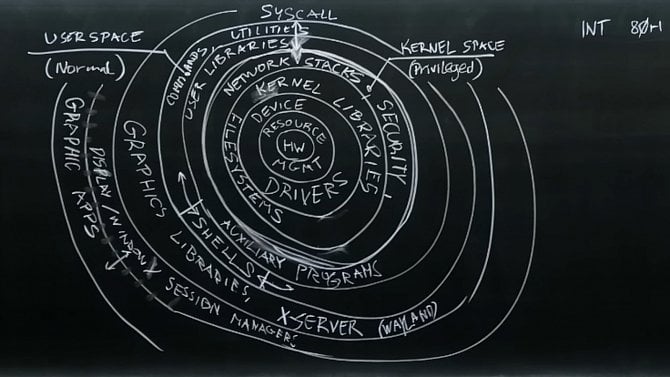 SYSCALL
INT 80H
USERSPACE
(Normal)
KERNEL SPACE
(Privileged)
UTILITIES
COMMANDS,
USER LIBRARIES
NETWORK STACKS
SECURITY
KERNEL LIBRARIES
DEVICE
DRIVERS
RESOURCE
MGMT
HW
FILESYSTEMS
AUXILIARY PROGRAMS
SHELLS
GRAPHICS
LIBRARIES,
X SERVER (WAYLAND)
DISPLAY/WINDOW/
SESSION MANAGERS
GRAPHIC
APPS